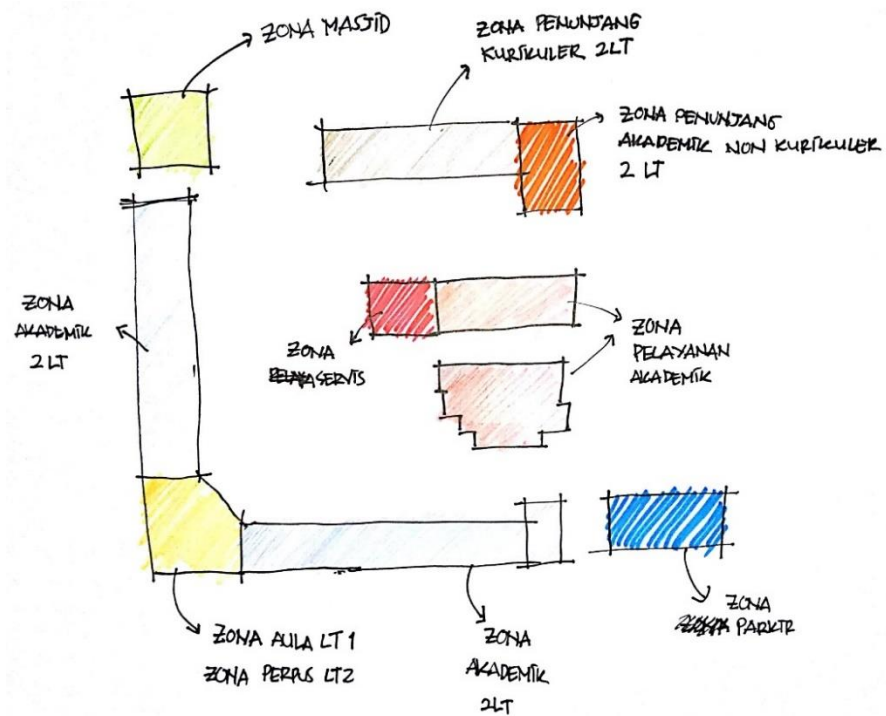 ZONA MASJID
ZONA PENUNJANG
KURIKULER 2LT
ZONA PENUNJANG
AKADEMIK NON KURIKULER
2 LT
ZONA
AKADEMIK
2LT
ZONA
SERVIS
ZONA
PELAYANAN
AKADEMIK
ZONA AULA LT1
ZONA PERPUS LT2
ZONA
AKADEMIK
2LT
ZONA
PARKIR